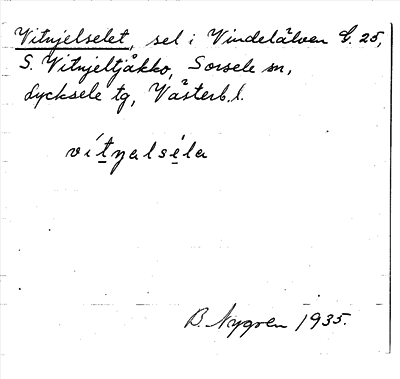 Vitnjelselet, sel i Vindelälven G. 25,
S. Vitnjeltjåkko, Sorsele sn,
Lycksele tg, Västerb. l.
vítnalséla
B. Nygren 1935.